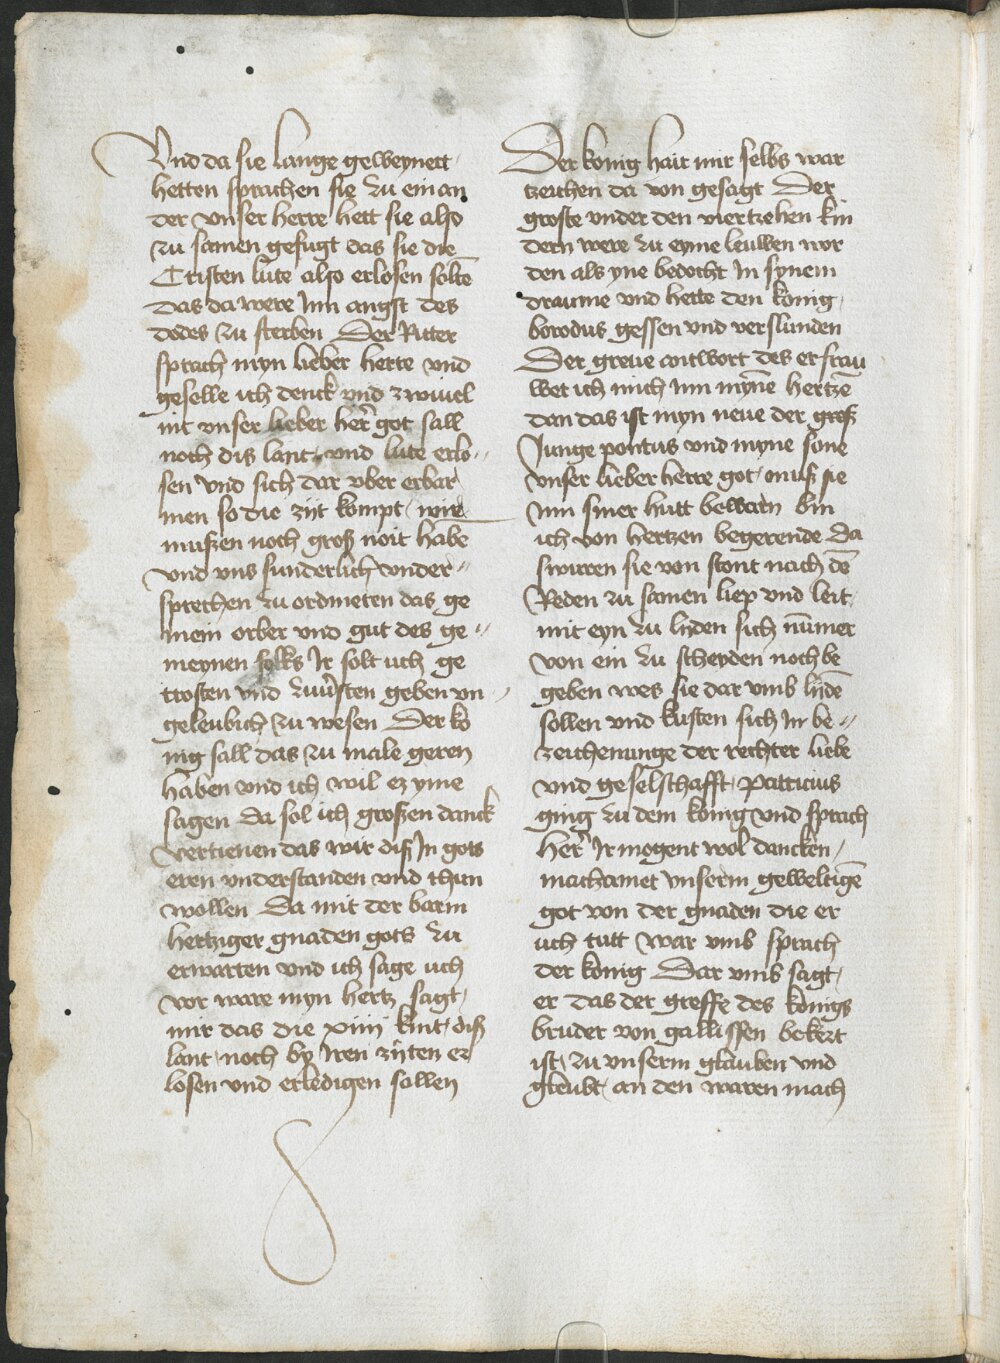 Vnd da sie lange geweynett
hetten sprachen sie zu ein an
der vnser herre hett sie also
zu samen gefugt das sie die
Cristen lute also erlosen soltē
das da were Inn angst des
dodes zu sterben Der Ritter
sprach myn lieber herre vnd
geselle ich denck vnd zwiuel
nit vnser lieber her got sall
noch dis lant vnd lute erlo"
sen vnd sich dar vber erbar
men so die zijt kompt wir
mußen noch groß noit habe
vnd vns sunderlich vnder"
sprechen zu ordineten das ge
mein orber vnd gut des ge"
meynen folks Ir solt uch ge
trosten vnd geben vn
geleubich zu wesen Der ko
nig sall das zu male geren
haben vnd ich wil ez yme
sagen da sol ich großen danck
vertienen das wir diß In gots
eren vnderstanden vnd thun
wollen Da mit der barm
hertziger gnaden gots zu
erwarten vnd ich sage uch
vor ware myn hertz sagt
mir das die xiiij kint diß
lant noch by Iren zijten er
losen vnd erledigen sollen
Der konig hait mir selbs war
tzeichen da von gesagt Der
groste vnder den viertzehen kin
dern were zu eyme leuwen wor
den als yne beducht In synem
draume vnd hette den konig
borodus gessen vnd verslunden
Der greue antwort des erfrau
wet ich mich inn mynē hertzē
dan das ist myn neue der groß
Junge pontus vnd myne sone
vnser lieber herre got muß sie
Inn siner hutt bewarn bin
ich von hertzen begerende da
swuren sie von stont nach dē
Reden zu samen liep vnd leit
mit eyn zu lyden sich nūmer
von ein zu scheyden noch be
geben wes sie dar vmb lydē
sollen vnd kusten sich In be"
zeichenunge der rechter liebe
vnd geselschafft patricius
ging zu dem konig vnd sprach
Her Ir mogent wol dancken
machamet vnserm geweltigē
got von der gnaden die er
uch tutt War vmb sprach
der konig Dar vmb sagt
er das der greffe des konigs
bruder von gallissen bekert
ist zu vnserm glauben vnd
gleubt an den waren mach